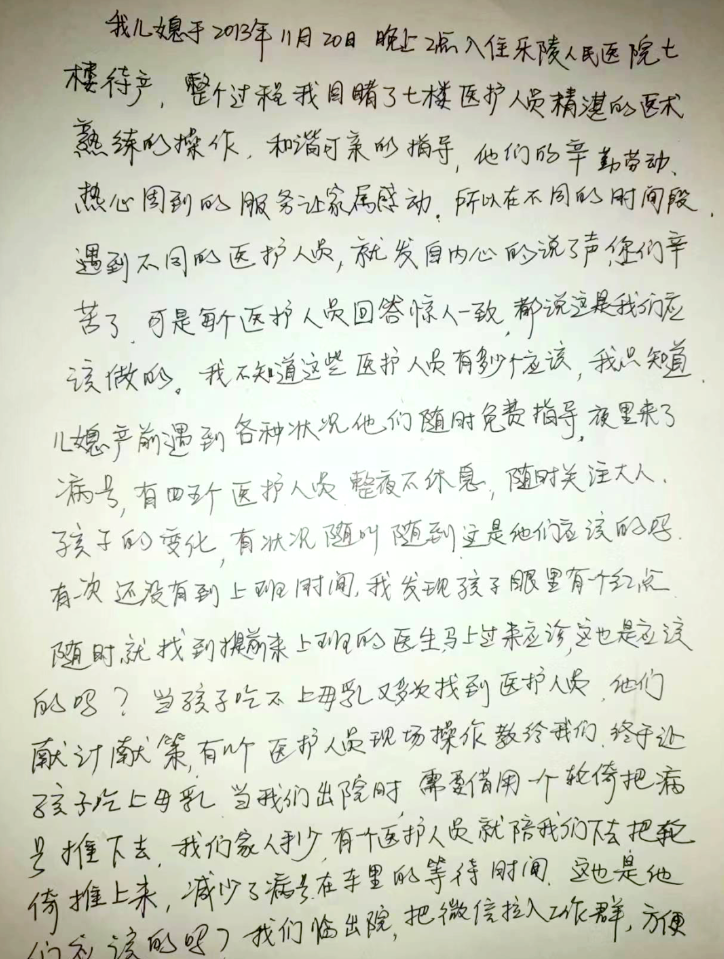 我儿媳于2013年11月20日晚上2点入住乐陵人民医院七
楼待产，整个过程我目睹了七楼医护人员精湛的医术
熟练的操作，和谐可亲的指导，他们的辛勤劳动、
热心周到的服务让家属感动。所以在不同的时间段，
遇到不同的医护人员，就发自内心的说了声，您们辛
苦了，可是每个医护人员回答惊人一致，都说这是我们应
该做的。我不知道这些医护人员有多少个应该，我只知道
儿媳产前遇到各种状况他们随时免费指导，夜里来了
病号，有四五个医护人员整夜不休息，随时关注大人、
孩子的变化，有状况随叫随到这是他们应该的吗。
有一次还没有到上班时间，我发现孩子眼里有个红点
随时就找到提前来上班的医生马上过来应诊，这也是应该
的吗？当孩子吃不上母乳又多次找到医护人员，他们
献计献策，有个医护人员现场操作教给我们，终于让
孩子吃上母乳 当我们出院时，需要借用一个轮倚把病
号推下去，我们家人手少，有个医护人员就陪我们下去把轮
倚推上来，减少了病号在车里的等待时间，这也是他
们应该的吗？我们临出院，把微信拉入工作群，方便